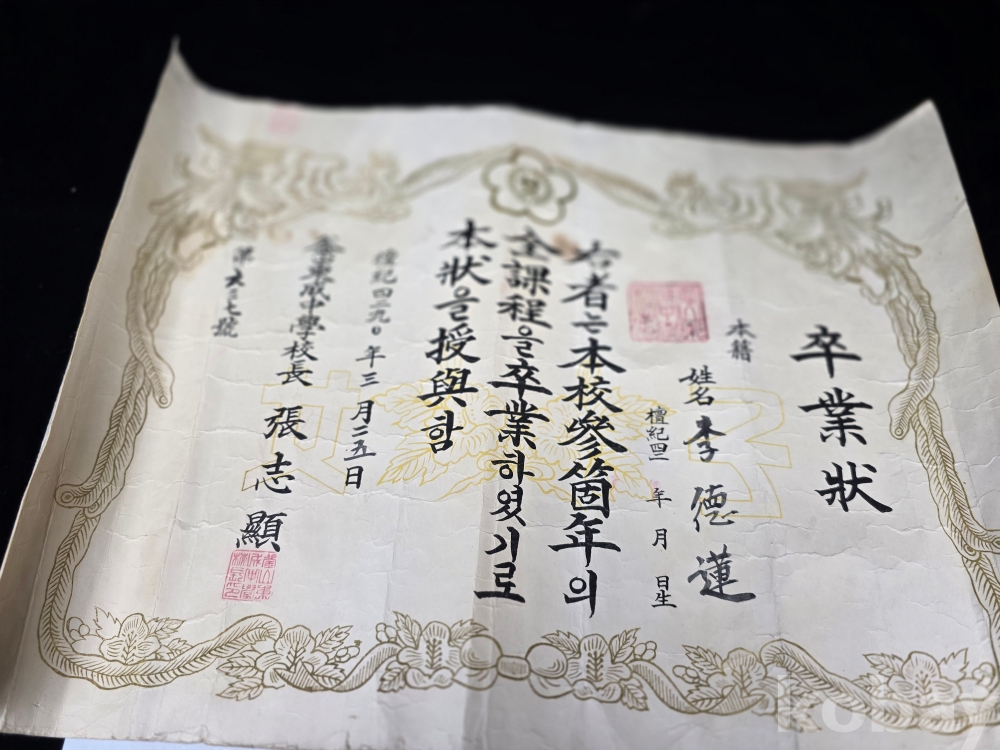 卒業狀
本籍
姓名 李德蓮
檀紀四二 年 月 日生
右者는本校參箇年의
全課程을卒業하였기로
本狀을授與함
檀紀四二九〇年三月二五日
中學校長 張志顯
第 七號
kobay